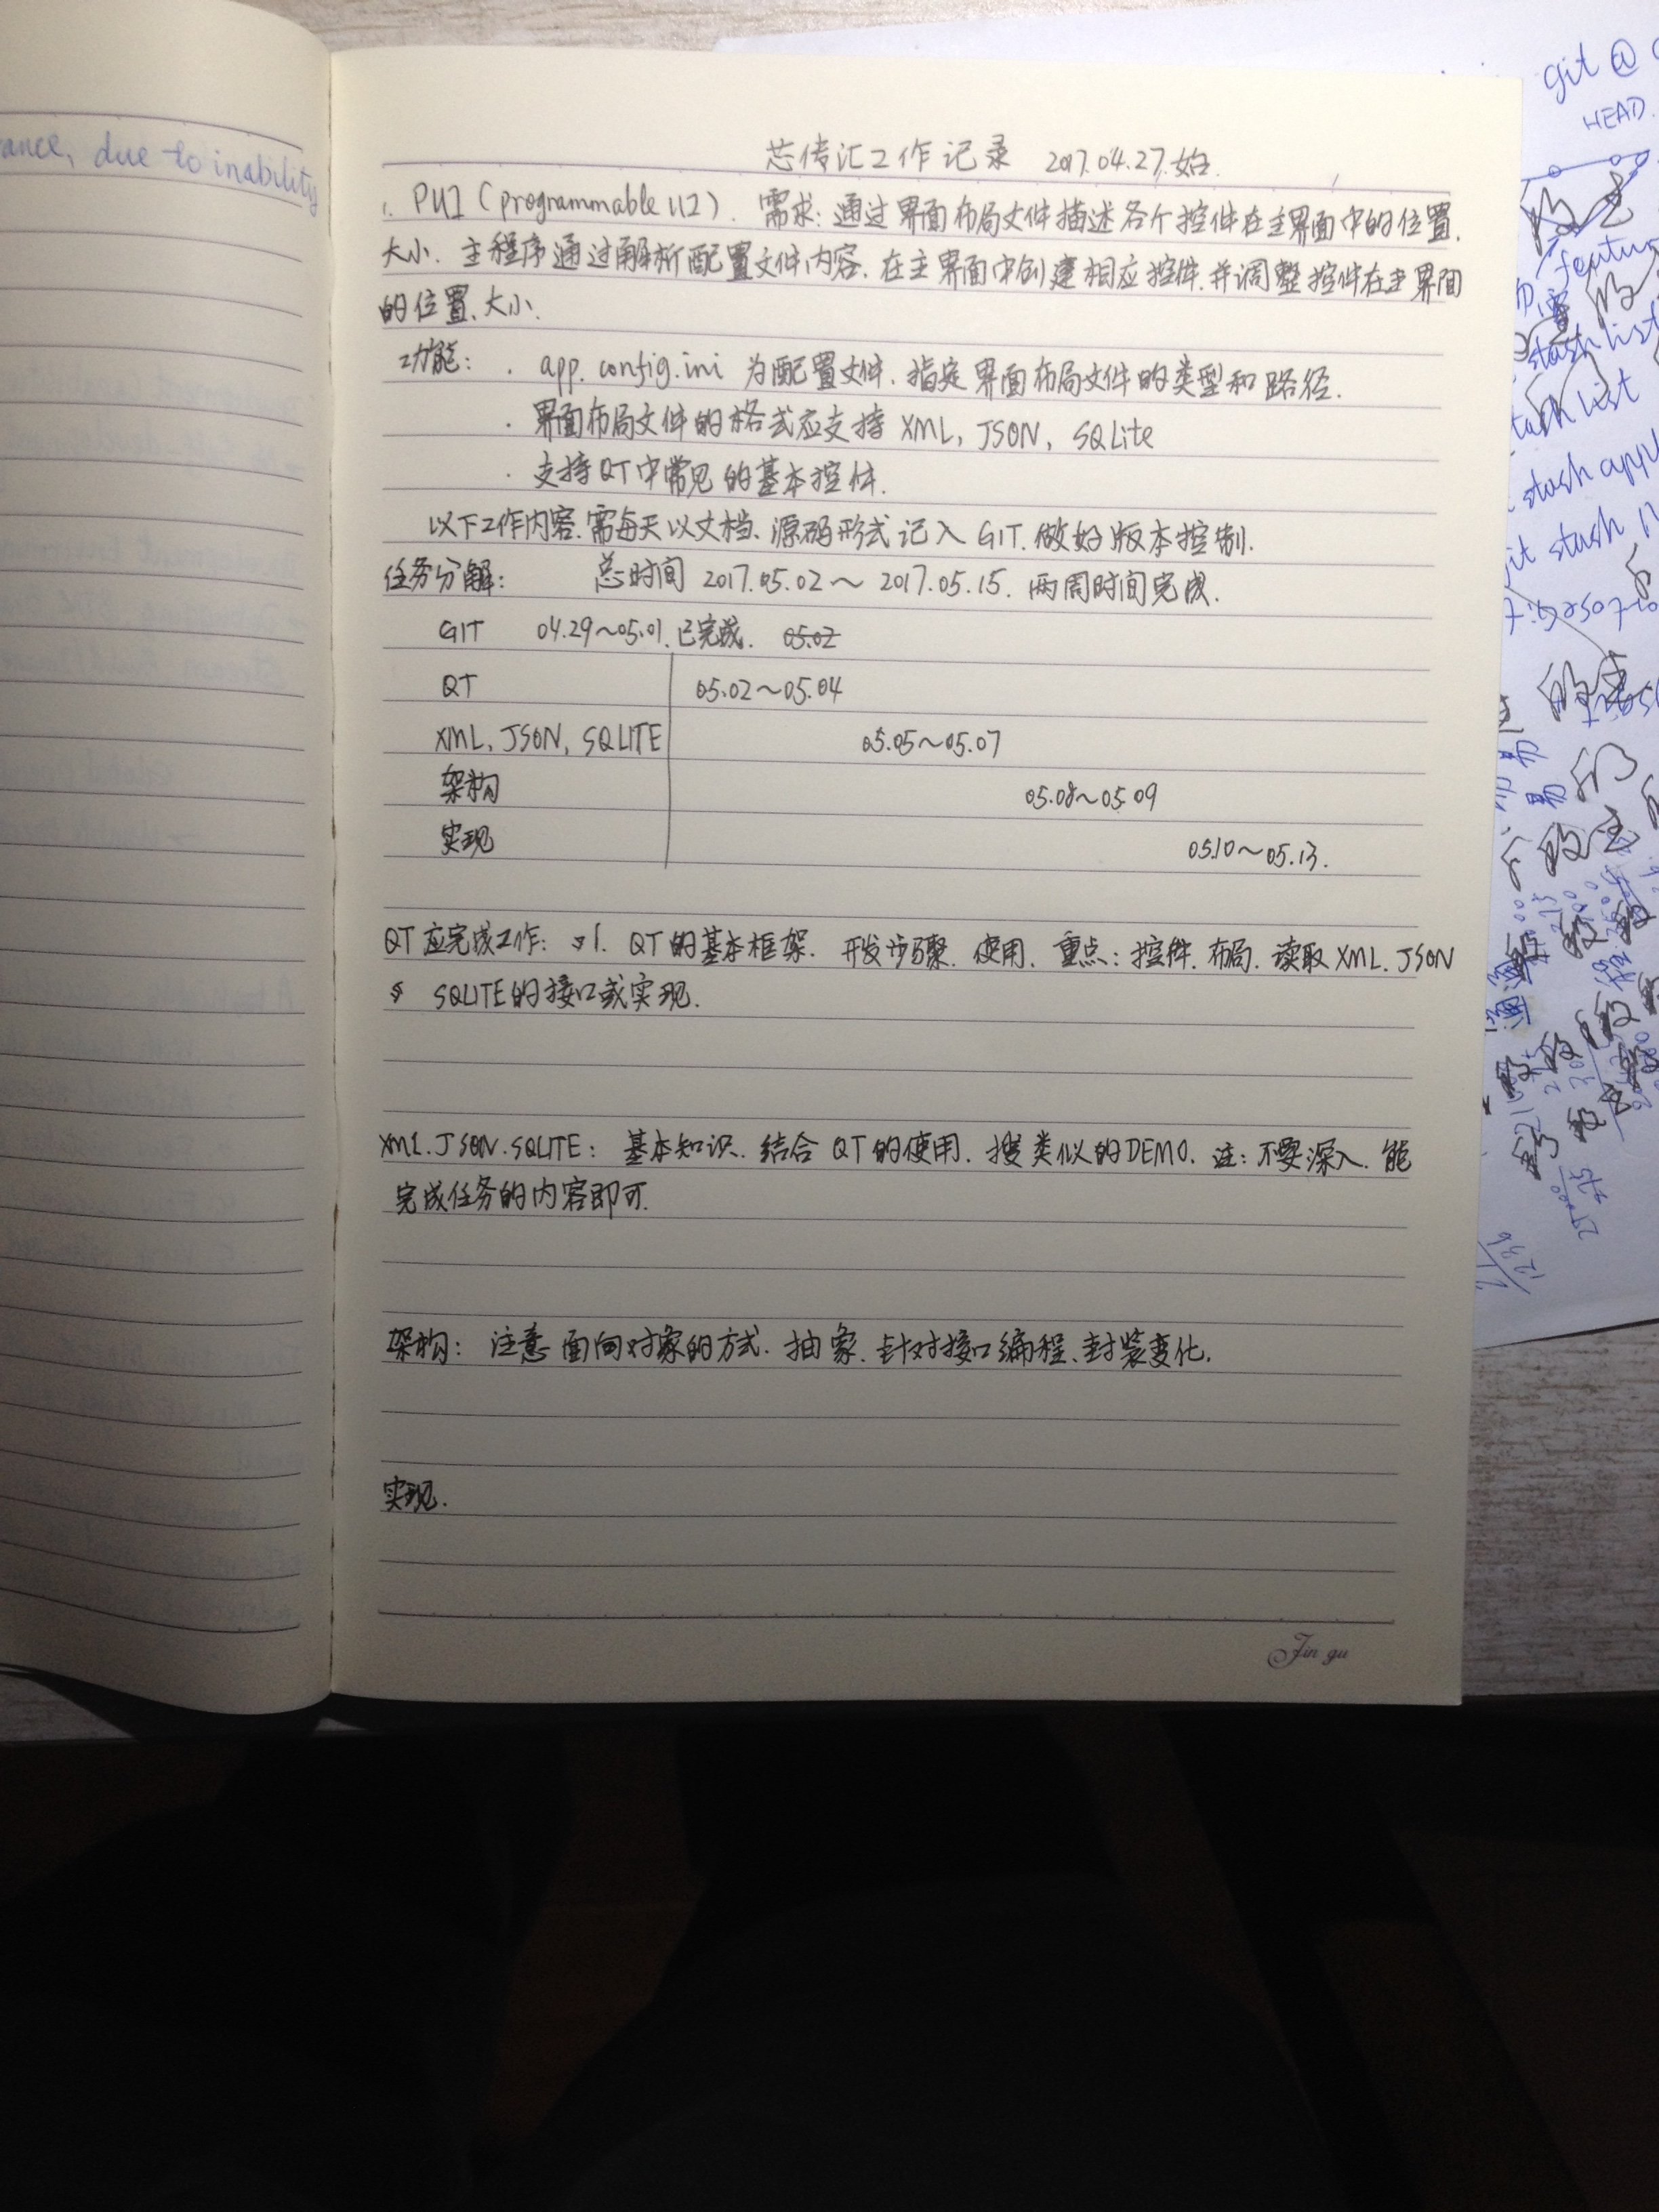 ance, due to inability
芯传汇工作记录 2017.04.27.始.
1. PUI (programmable UI). 需求: 通过界面布局文件描述各个控件在主界面中的位置.
大小. 主程序通过解析配置文件内容. 在主界面中创建相应控件. 并调整控件在主界面
的位置、大小.
功能: · app.config.ini 为配置文件. 指定界面布局文件的类型和路径.
· 界面布局文件的格式应支持 XML, JSON, SQLite
· 支持QT中常见的基本控件.
以下工作内容. 需每天以文档、源码形式记入 GIT. 做好版本控制.
任务分解: 总时间 2017.05.02～2017.05.15. 两周时间完成.
GIT 04.29～05.01. 已完成. 05.02
QT 05.02～05.04
XML, JSON, SQLITE 05.05～05.07
架构 05.08～05.09
实现 05.10～05.13.
QT应完成工作: 1. QT的基本框架. 开发步骤. 使用. 重点: 控件. 布局. 读取XML. JSON
SQLITE的接口或实现.
XML. JSON. SQLITE: 基本知识. 结合QT的使用. 搜类似的DEMO. 注: 不要深入. 能
完成任务的内容即可.
架构: 注意面向对象的方式. 抽象. 针对接口编程、封装变化.
实现.
Jin gu
git @
HEAD.
featur
stash list
stash list
stash appl
git stash